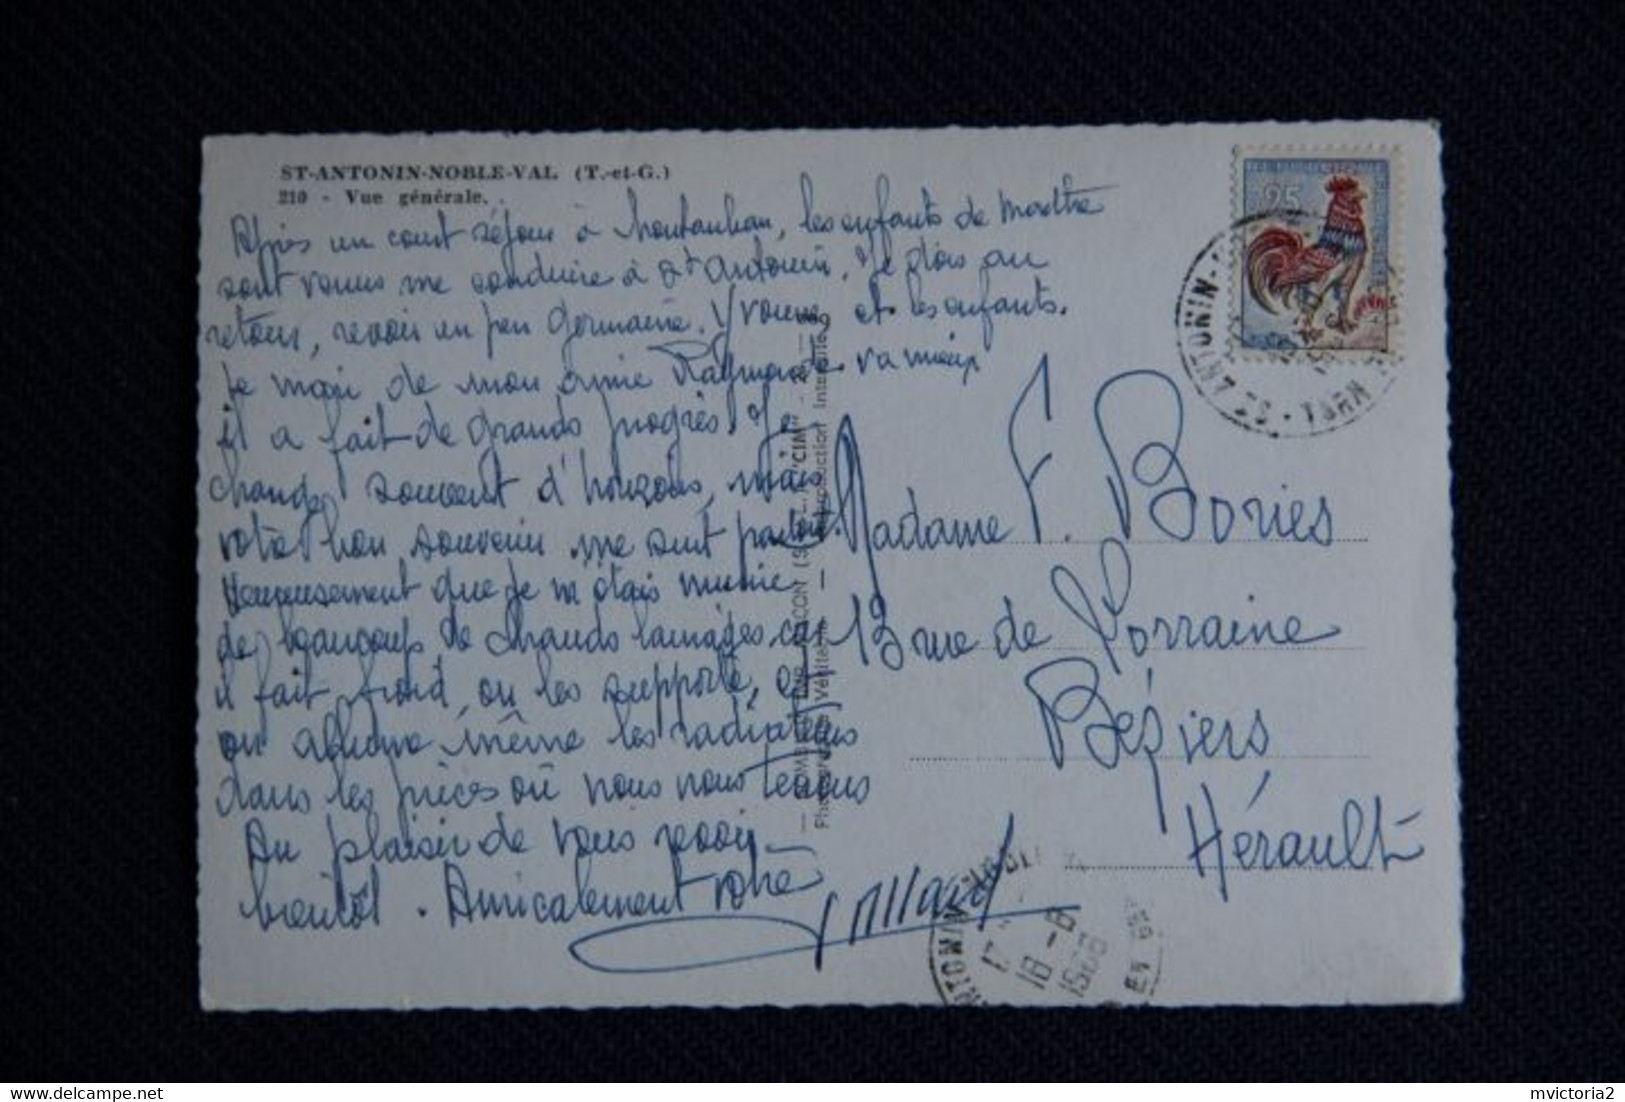 ST-ANTONIN-NOBLE-VAL (T.-et-G.)
210 - Vue générale.
Après un court séjour à Montauban, les enfants de
sont venus me conduire à St Antonin. Je dois au
retour, revoir un peu Germaine. Yvonne, et les enfants.
la main de mon amie Raymonde va mieux
il a fait de grands progrès. Je
change souvent d'horizons, mais
votre bon souvenir me suit partout
Heureusement que je m'étais munie
de beaucoup de chauds lainages car
il fait froid, on les supporte, et
on allume même les radiateurs
dans les pièces où nous nous tenons
Au plaisir de vous revoir
bientôt. Amicalement votre
Madame F. Bories
13 rue de Lorraine
Béziers
Hérault
25
TARN
18 - 8
"CIM"
Reproduction Interdite